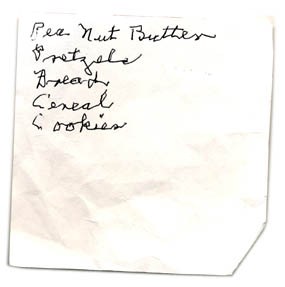 Pea Nut Butter
Pretzels
Bread
Cereal
Cookies